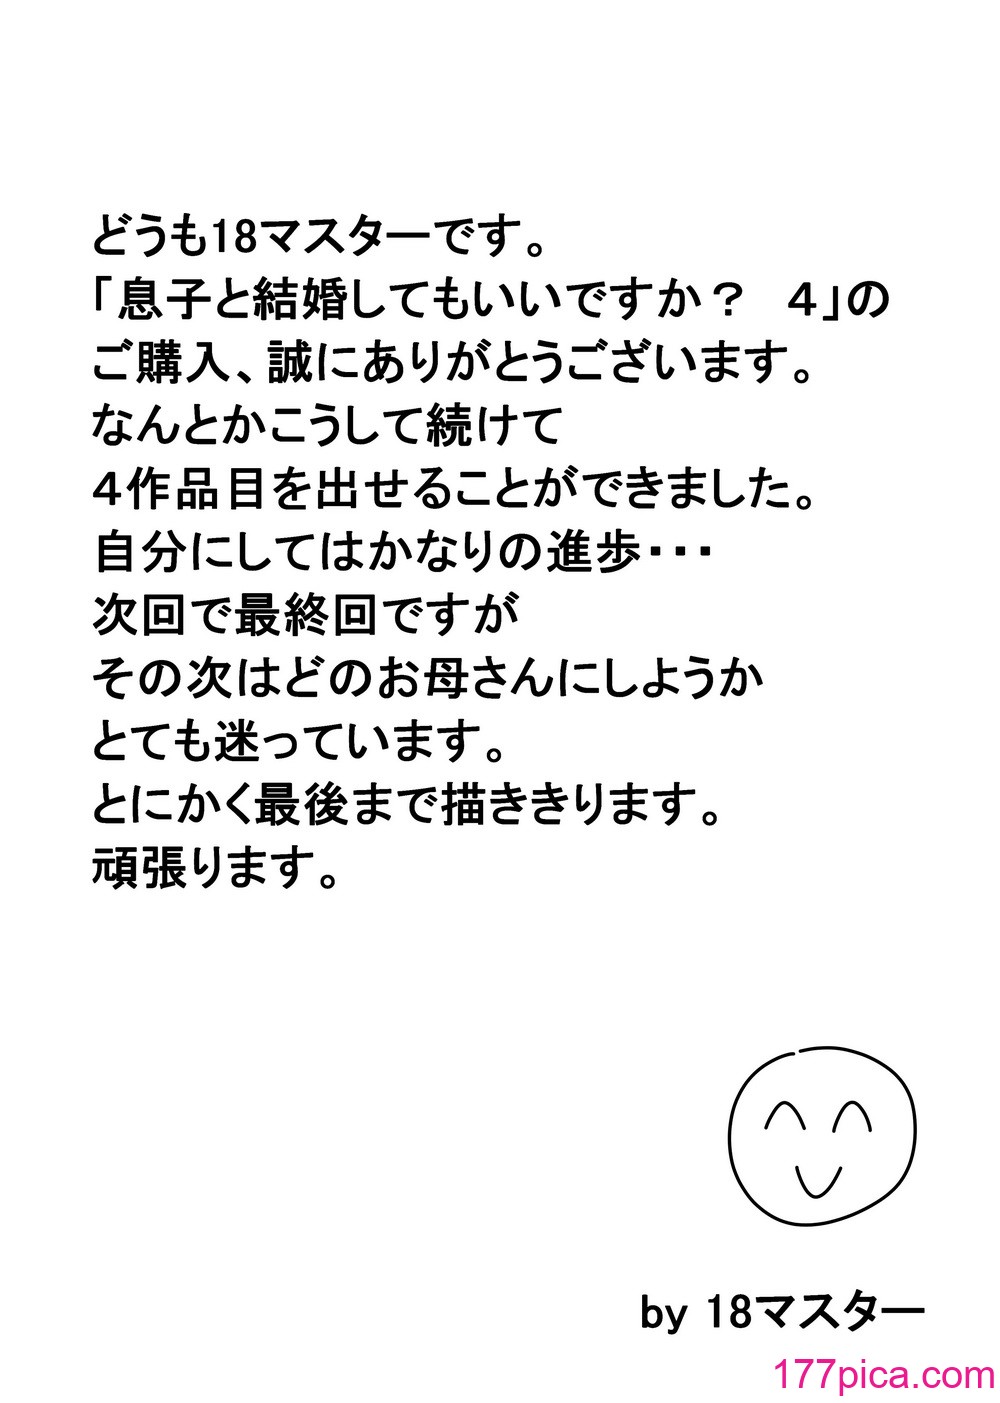 どうも18マスターです。
「息子と結婚してもいいですか？　４」の
ご購入、誠にありがとうございます。
なんとかこうして続けて
４作品目を出せることができました。
自分にしてはかなりの進歩・・・
次回で最終回ですが
その次はどのお母さんにしようか
とても迷っています。
とにかく最後まで描ききります。
頑張ります。
by 18マスター
177pica.com